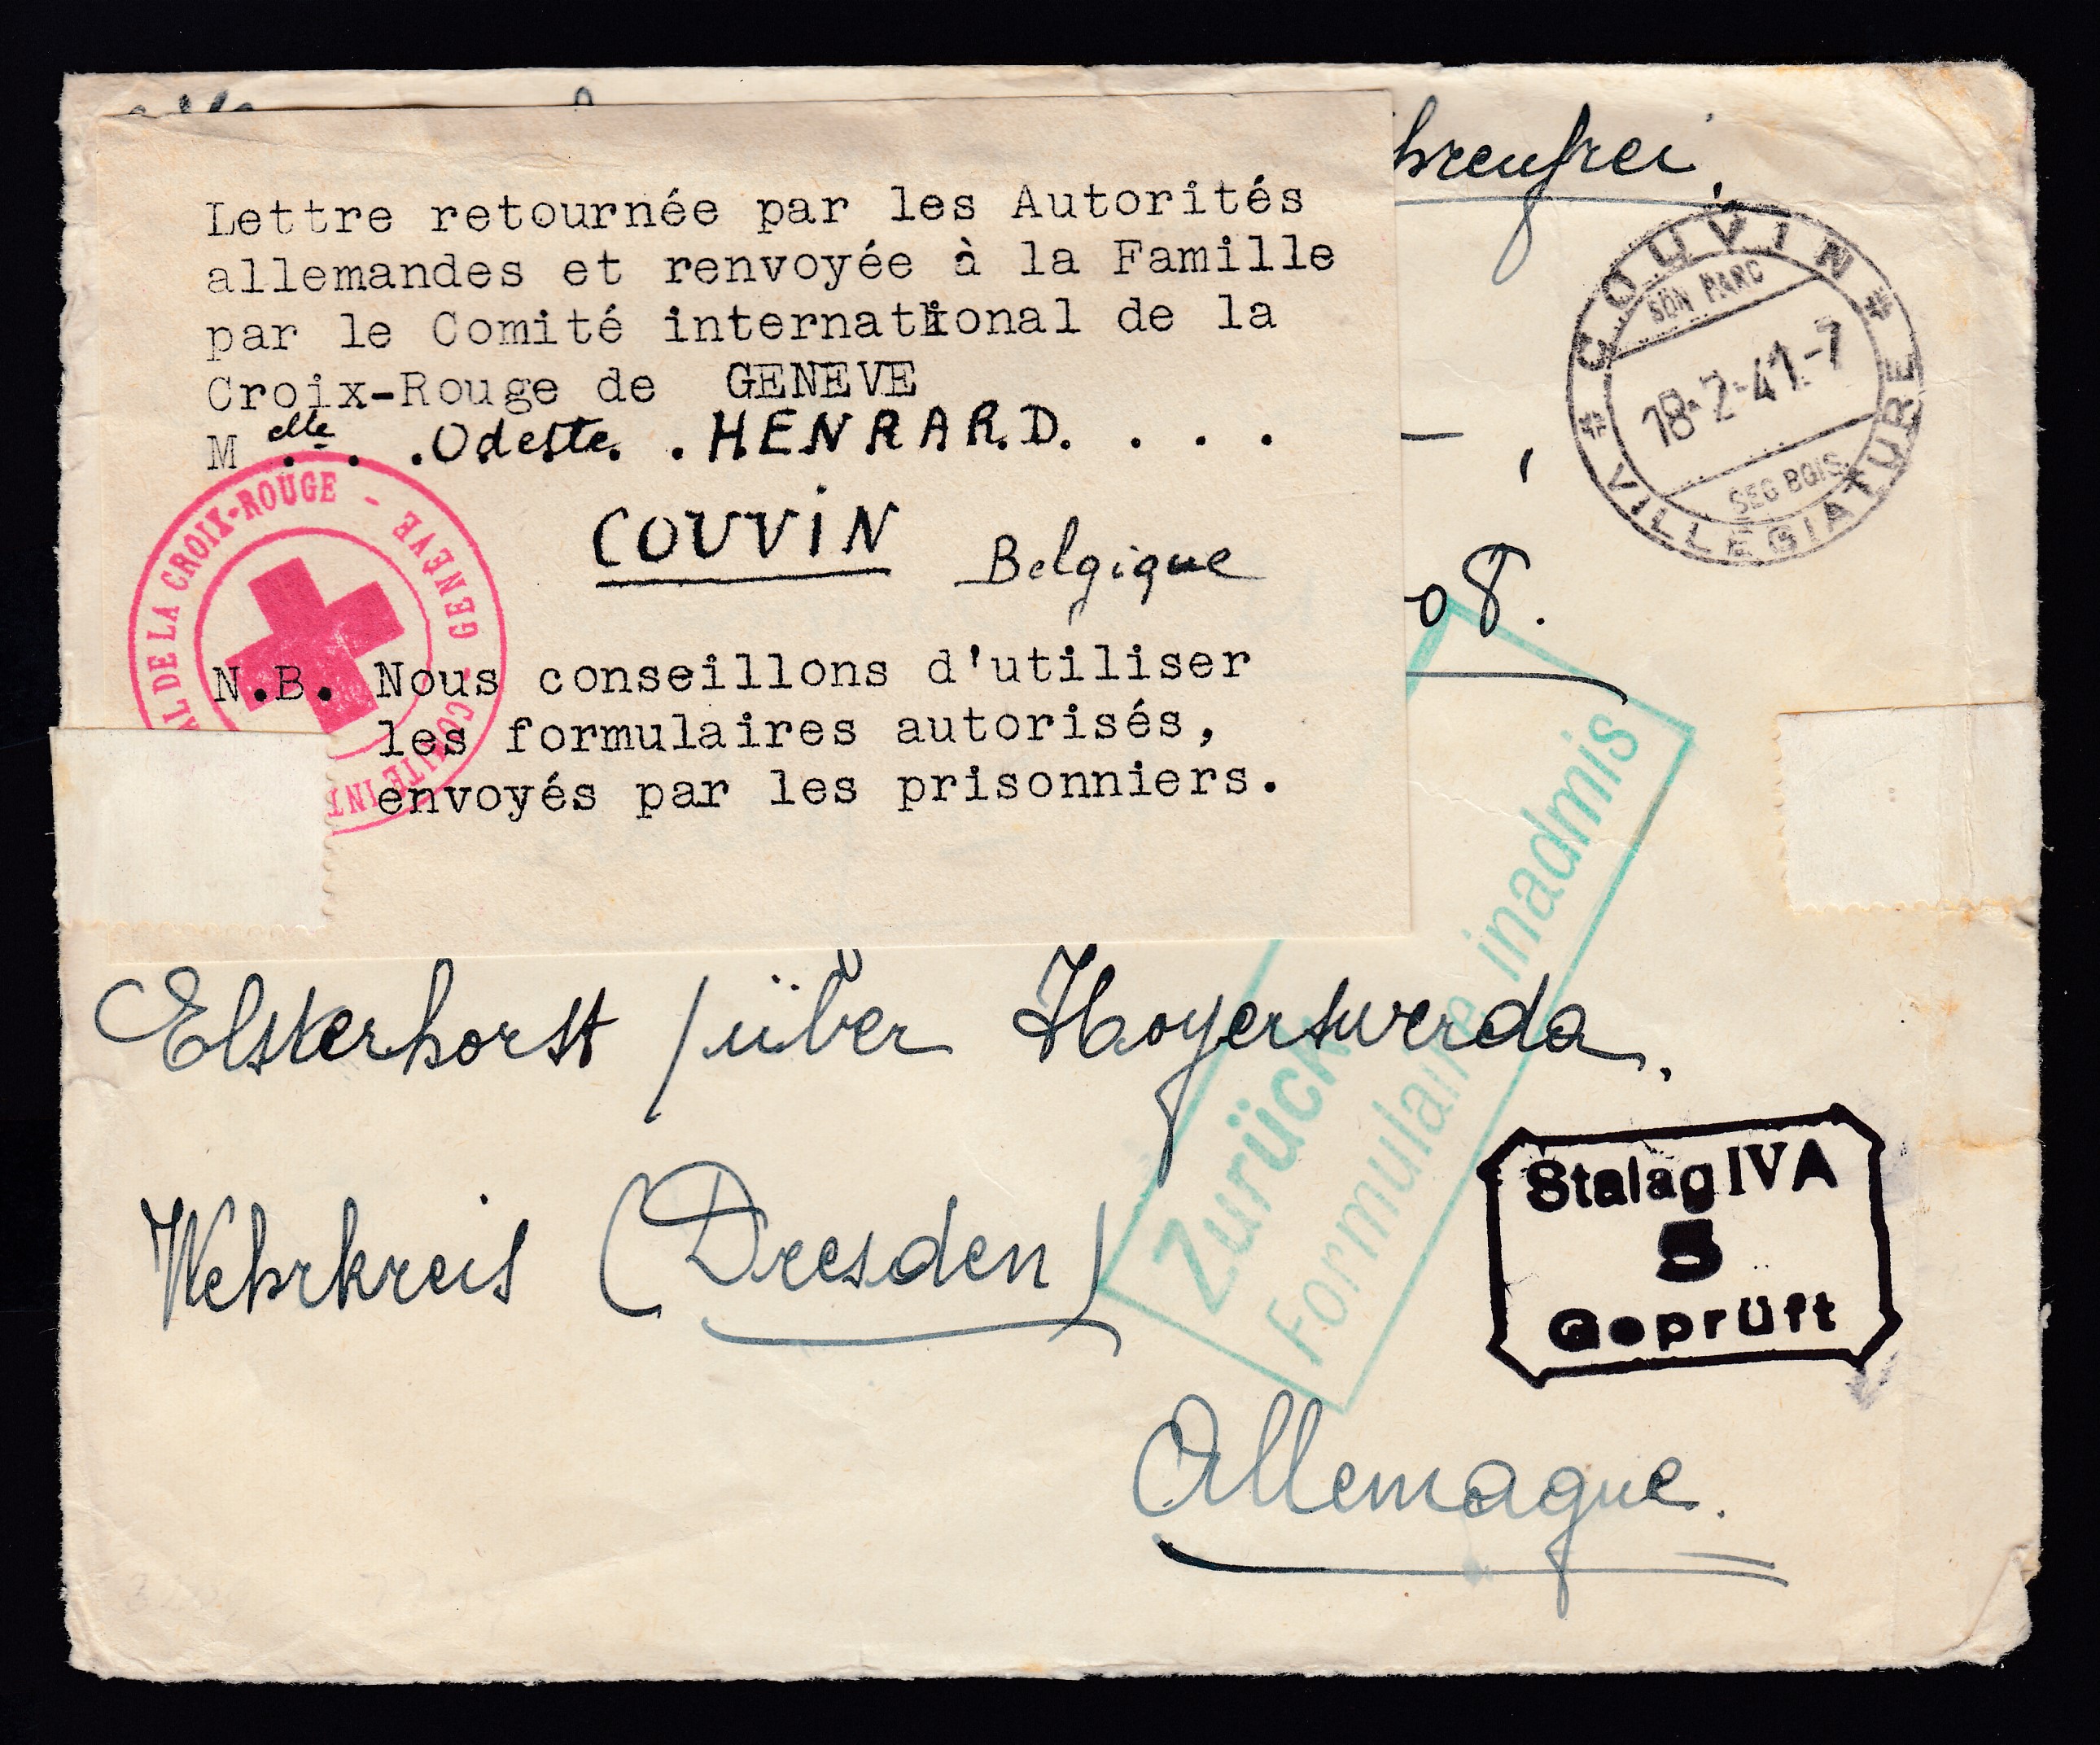 hrenfrei
COUVIN
SON PARC
18-2-41.-7
SEC BOIS
VILLEGIATURE
Lettre retournée par les Autorités
allemandes et renvoyée à la Famille
par le Comité international de la
Croix-Rouge de GENEVE
Melle. . .Odette. .HENRARD. . . .
COUVIN Belgique
AL DE LA CROIX-ROUGE - GENÈVE - COMITÉ INT
N.B. Nous conseillons d'utiliser
les formulaires autorisés,
envoyés par les prisonniers.
08.
Zurück
Formulaire inadmis
Elsterhorst / über Hoyerswerda,
Wehrkreis (Dresden)
Stalag IVA
5
Geprüft
Allemagne.